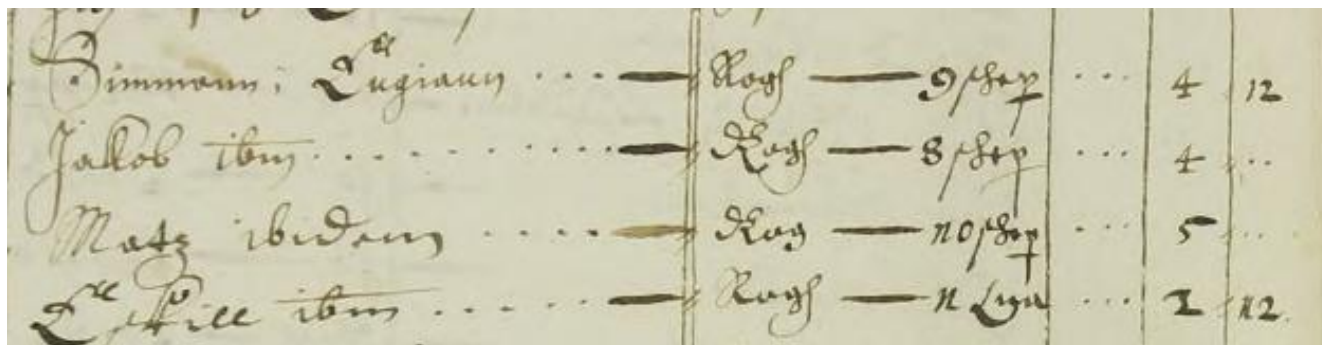 Simmonn i Lugiann .... — Rogh — 9 schep ... 4 12
Jakob ibm .......... — Rogh — 8 schep ... 4 ..
Matz ibidem .... — Rog — 10 schep ... 5 ..
Eskill ibm ..... — Rogh — 1 ... 12